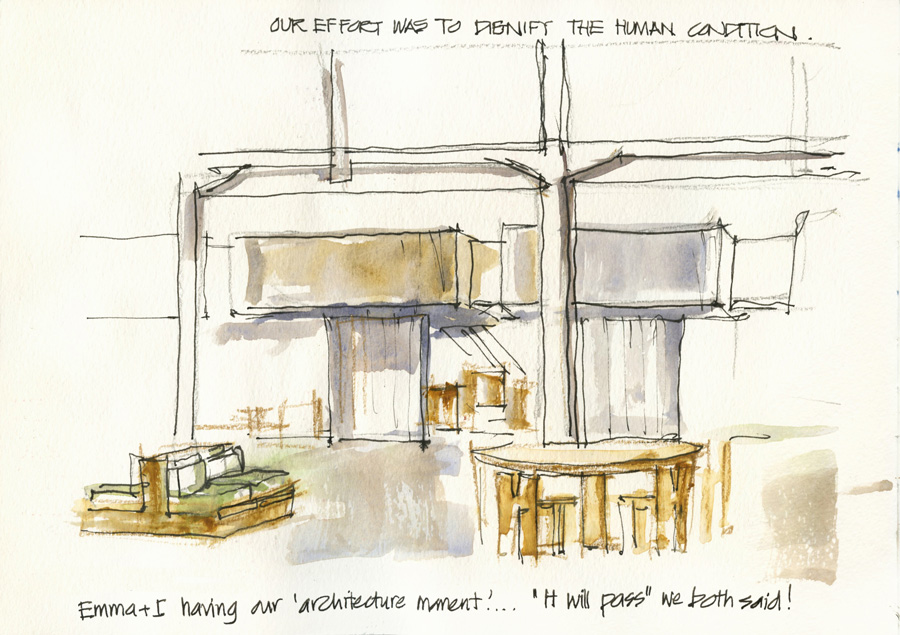 OUR EFFORT WAS TO DIGNIFY THE HUMAN CONDITION.
Emma + I having our 'architecture moment'... "It will pass" we both said!